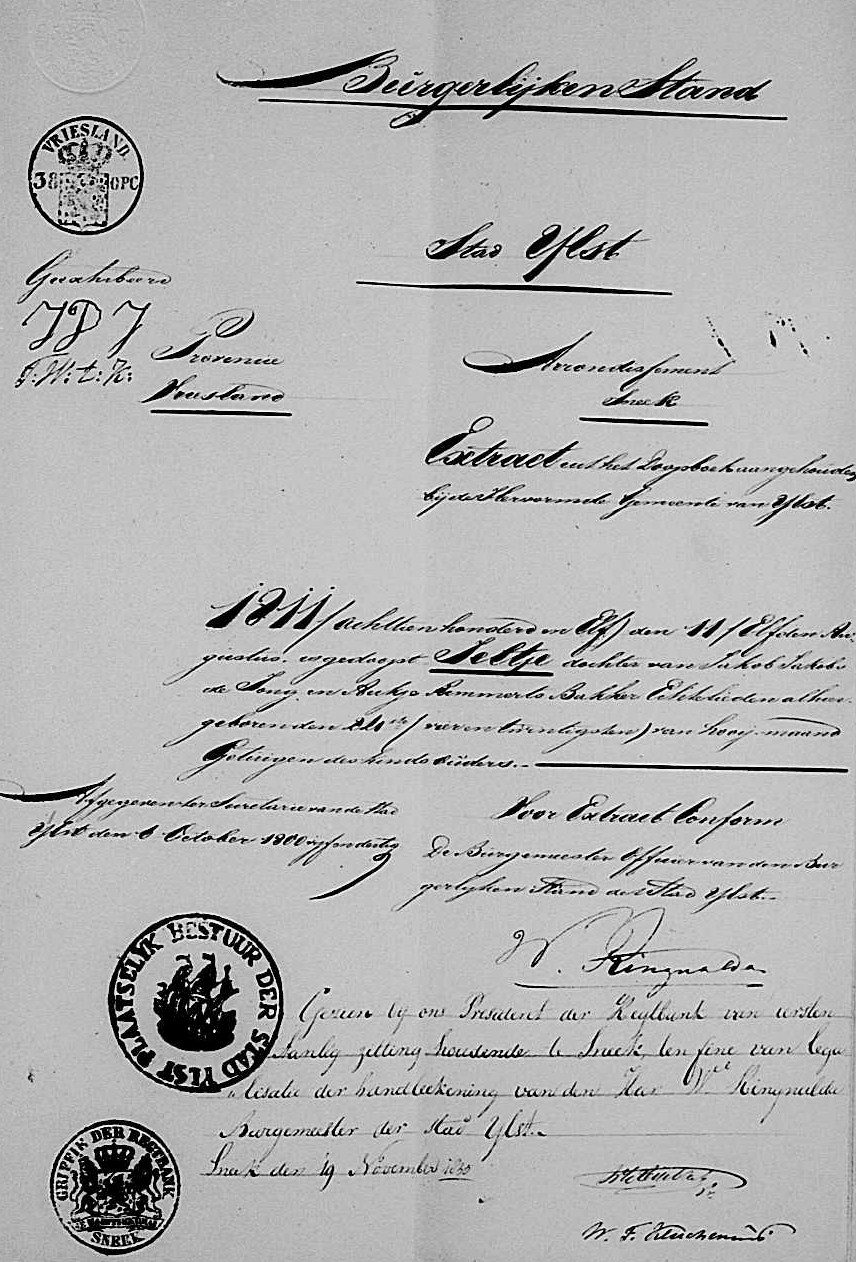 Burgerlijken Stand
VRIESLAND
38 OPC
Stad Ylst
Provencie
Vriesland
Arrondissement
Sneek
Extract uit het Doopboek aangehouden
bij de Hervormde Gemeente van Ylst.
1811/ achttien honderd en Elf) den 11/ Elfden Au-
gustus. is gedoopt Jeltje dochter van Jakob Jakobs
de Jong en Aukje Remmerts Bakker Echtelieden alhier
geboren den 24ste/ vier en twintigsten) van hooij-maand
Getuigen des kinds ouders.
Afgegeven ter Secretarie van de Stad
Ylst den 6 October 1800 vijf en dertig
Voor Extract Conform
De Burgemeester Officier van den Bur
gerlijken Stand der Stad Ylst.
W. Ringnalda
PLAATSELYK BESTUUR DER STAD YLST
Gezien by ons President der Regtbank van eersten
Aanleg zitting houdende te Sneek, ten fine van lega
lisatie der handteekening van den Heer W. Ringnalda
Burgemeester der stad Ylst.
Sneek den 19 November 1835
GRIFFIE DER REGTBANK
SNEEK
W. F.